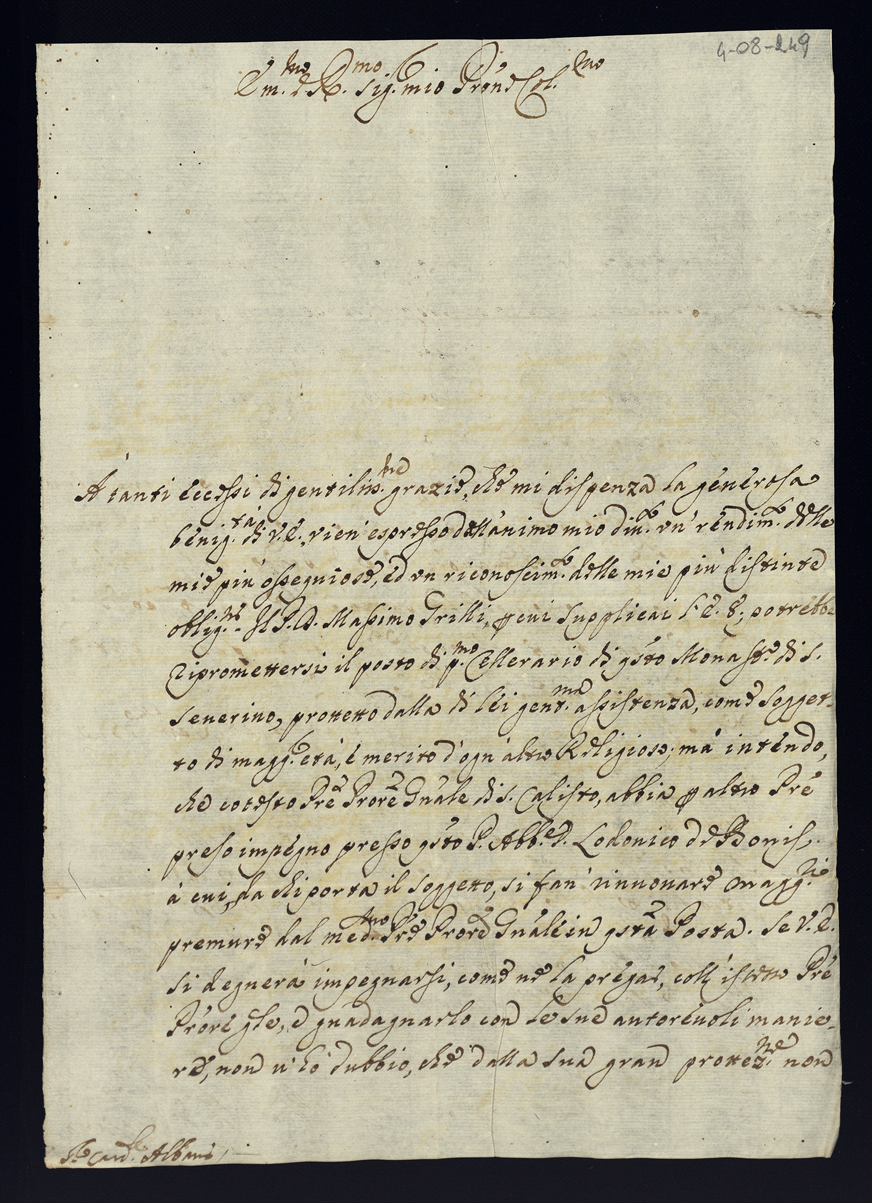 4-08-249
Em.mo e R.mo Sig.r mio Prōne Col.mo
A' tanti eccessi di gentiliss.me grazie, che mi dispenza la generosa
benig.tà di V.E., vien' espresso dall'animo mio diu.to un' rendim.to delle
mie più ossequiose, ed un riconoscim.to delle mie più distinte
oblig.ni. Il P.D. Massimo Grilli, p cui supplicai l'E.S., potrebbe
ripromettersi il posto di p.mo Cellerario di q̄sto Monast.o di S.
Severino, protetto dalla di lei gent.ma assistenza, come sogget-
to di magg.r età, e merito d'ogn'altro Religioso; mà intendo,
che cotesto Prē Prorē Gnāle di S. Calisto, abbia p altro Prē
preso impegno presso q̄sto P. Abb.e D. Lodovico de Bonis,
à cui, da chi porta il soggetto, si fan' rinnovare magg.ri
premure dal med.mo Prē Prorē Gnāle in q̄stā Posta. Se V.E.
si degnerà impegnarsi, come ne la prēgai, coll'istesso Prē
Prorē gle, e guadagnarlo con le sue autorevoli manie-
re, non v'hò dubbio, che dalla sua gran prottez.ne non
S.r Card.le Albani